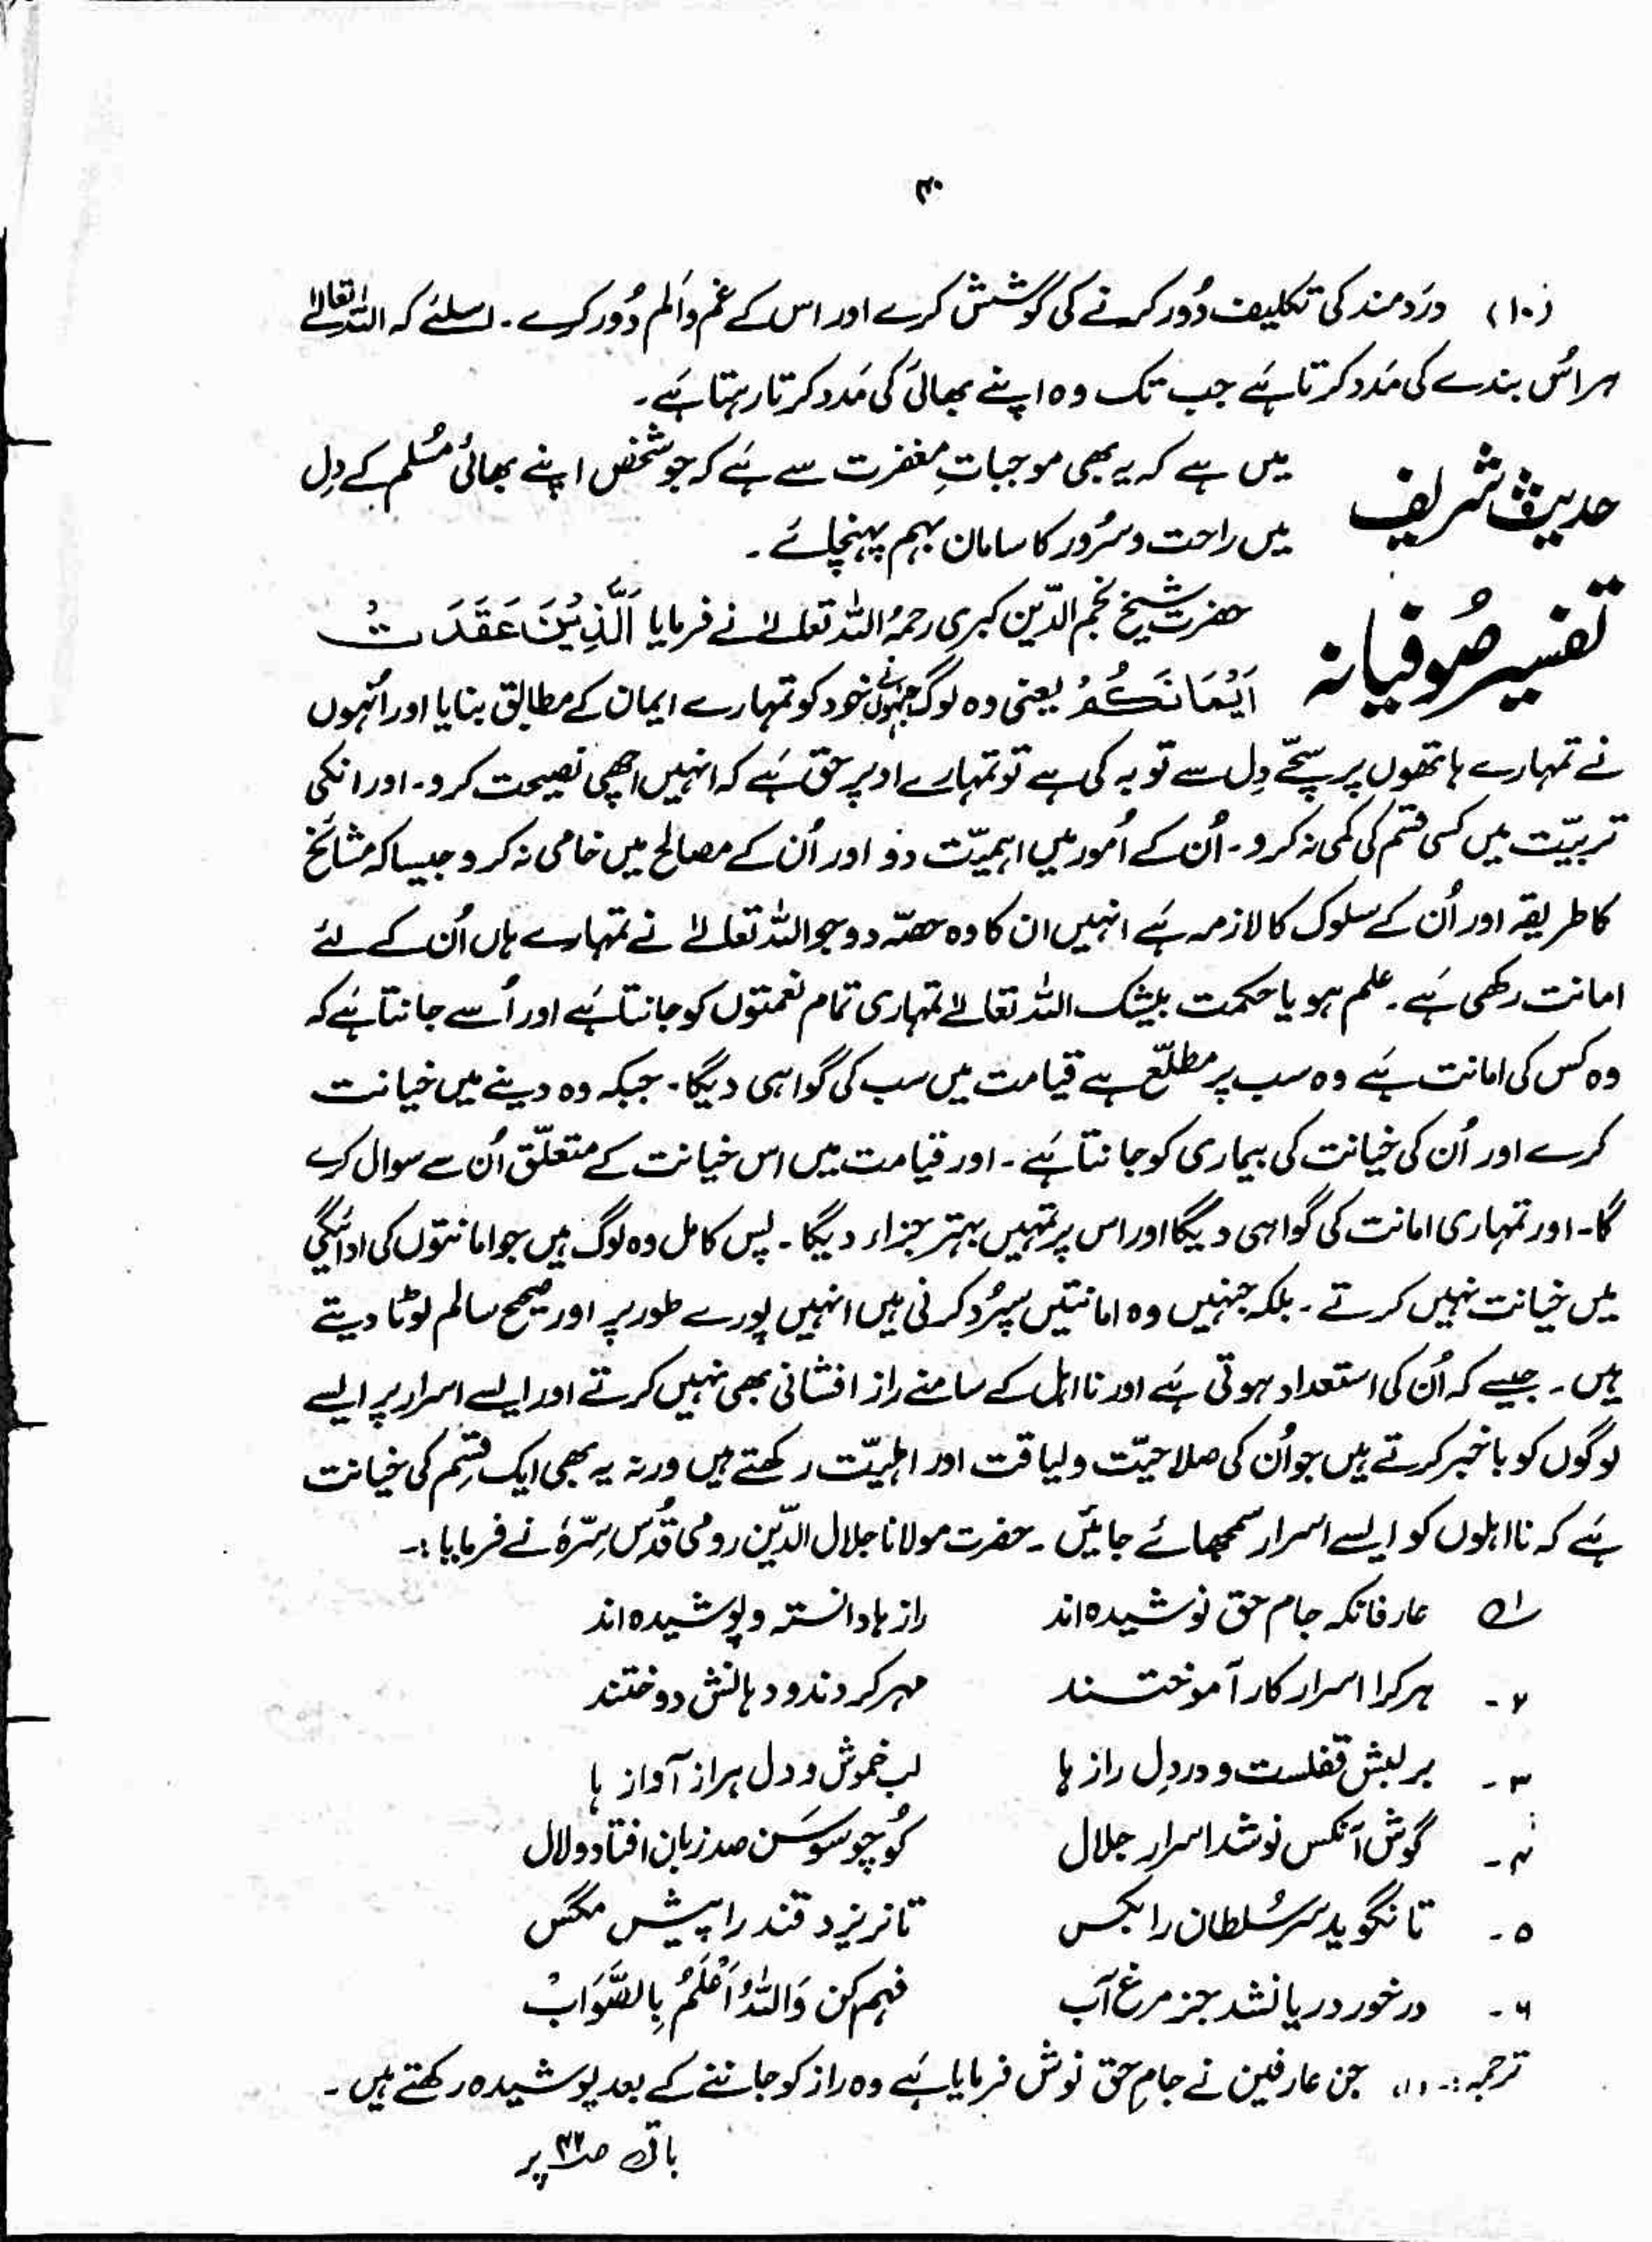 ۴۰
(۱۰) دردمند کی تکلیف دُور کرنے کی کوشش کرے اور اس کے غم و اَلم دُور کرے۔ اسلئے کہ اللہ تعالےٰ
ہر اُس بندے کی مَدد کرتا ہَے جب تک وہ اپنے بھائی کی مَدد کرتا رہتا ہَے۔
حدیث شریف میں ہے کہ یہ بھی موجباتِ مغفرت سے ہَے کہ جو شخص اپنے بھائی مُسلم کے دِل
میں راحت و سُرور کا سامان بہم پہنچائے۔
تفسیر صُوفیانہ حضرت شیخ نجم الدّین کبریٰ رحمہُ اللہ تعالےٰ نے فرمایا اَلَّذِیْنَ عَقَدَتْ
اَیْمَانَکُمْ یعنی وہ لوگ جنہوں نے خود کو تمہارے ایمان کے مطابق بنایا اور اُنہوں
نے تمہارے ہاتھوں پر سچّے دِل سے توبہ کی ہے تو تمہارے اوپر حق ہَے کہ انہیں اچھی نصیحت کرو۔ اور انکی
تربیّت میں کسی قسم کی کمی نہ کرو۔ اُن کے اُمور میں اہمیّت دو اور اُن کے مصالح میں خامی نہ کرو جیسا کہ مشائخ
کا طریقہ اور اُن کے سلوک کا لازمہ ہَے انہیں ان کا وہ حصّہ دو جو اللہ تعالےٰ نے تمہارے ہاں اُن کے لئے
امانت رکھی ہَے۔ علم ہو یا حکمت بیشک اللہ تعالےٰ تمہاری تمام نعمتوں کو جانتا ہَے اور اُسے جانتا ہَے کہ
وہ کس کی امانت ہَے وہ سب پر مطلّع ہے قیامت میں سب کی گواہی دیگا۔ جبکہ وہ دینے میں خیانت
کرے اور اُن کی خیانت کی بیماری کو جانتا ہَے۔ اور قیامت میں اس خیانت کے متعلّق اُن سے سوال کرے
گا۔ اور تمہاری امانت کی گواہی دیگا اور اس پر تمہیں بہتر جزاء دیگا۔ پس کامل وہ لوگ ہیں جو امانتوں کی ادائیگی
میں خیانت نہیں کرتے۔ بلکہ جنہیں وہ امانتیں سپُرد کرنی ہیں انہیں پورے طور پر اور صحیح سالم لوٹا دیتے
ہیں۔ جیسے کہ اُن کی استعداد ہوتی ہَے اور نااہل کے سامنے راز افشانی بھی نہیں کرتے اور ایسے اسرار پر ایسے
لوگوں کو باخبر کرتے ہیں جو اُن کی صلاحیّت و لیاقت اور اہلیّت رکھتے ہیں ورنہ یہ بھی ایک قِسم کی خیانت
ہَے کہ نااہلوں کو ایسے اسرار سمجھائے جائیں۔ حضرت مولانا جلال الدّین رومی قُدِّس سِرّہٗ نے فرمایا:۔
۱۔ عارفانکہ جام حق نوشیدہ اند رازہا دانستہ و پوشیدہ اند
۲۔ ہرکرا اسرار کار آموختند مہر کردند و دہانش دوختند
۳۔ بر لبش قفلست و در دِل راز ہا لب خموش و دل پراز آواز ہا
۴۔ گوش آنکس نوشد اسرارِ جلال کُو چو سوسَن صد زبان افتاد و لال
۵۔ تا نگوید سرِ سُلطان را بکس تا نریزد قند را پیش مگس
۶۔ درخور دریا نشد جز مرغ آب فہم کن وَاللہُ اَعْلَمُ بِالصَّوَابْ
ترجمہ:۔ (۱) جن عارفین نے جامِ حق نوش فرمایا ہَے وہ راز کو جاننے کے بعد پوشیدہ رکھتے ہیں۔
باقی صـ۴۲ پر